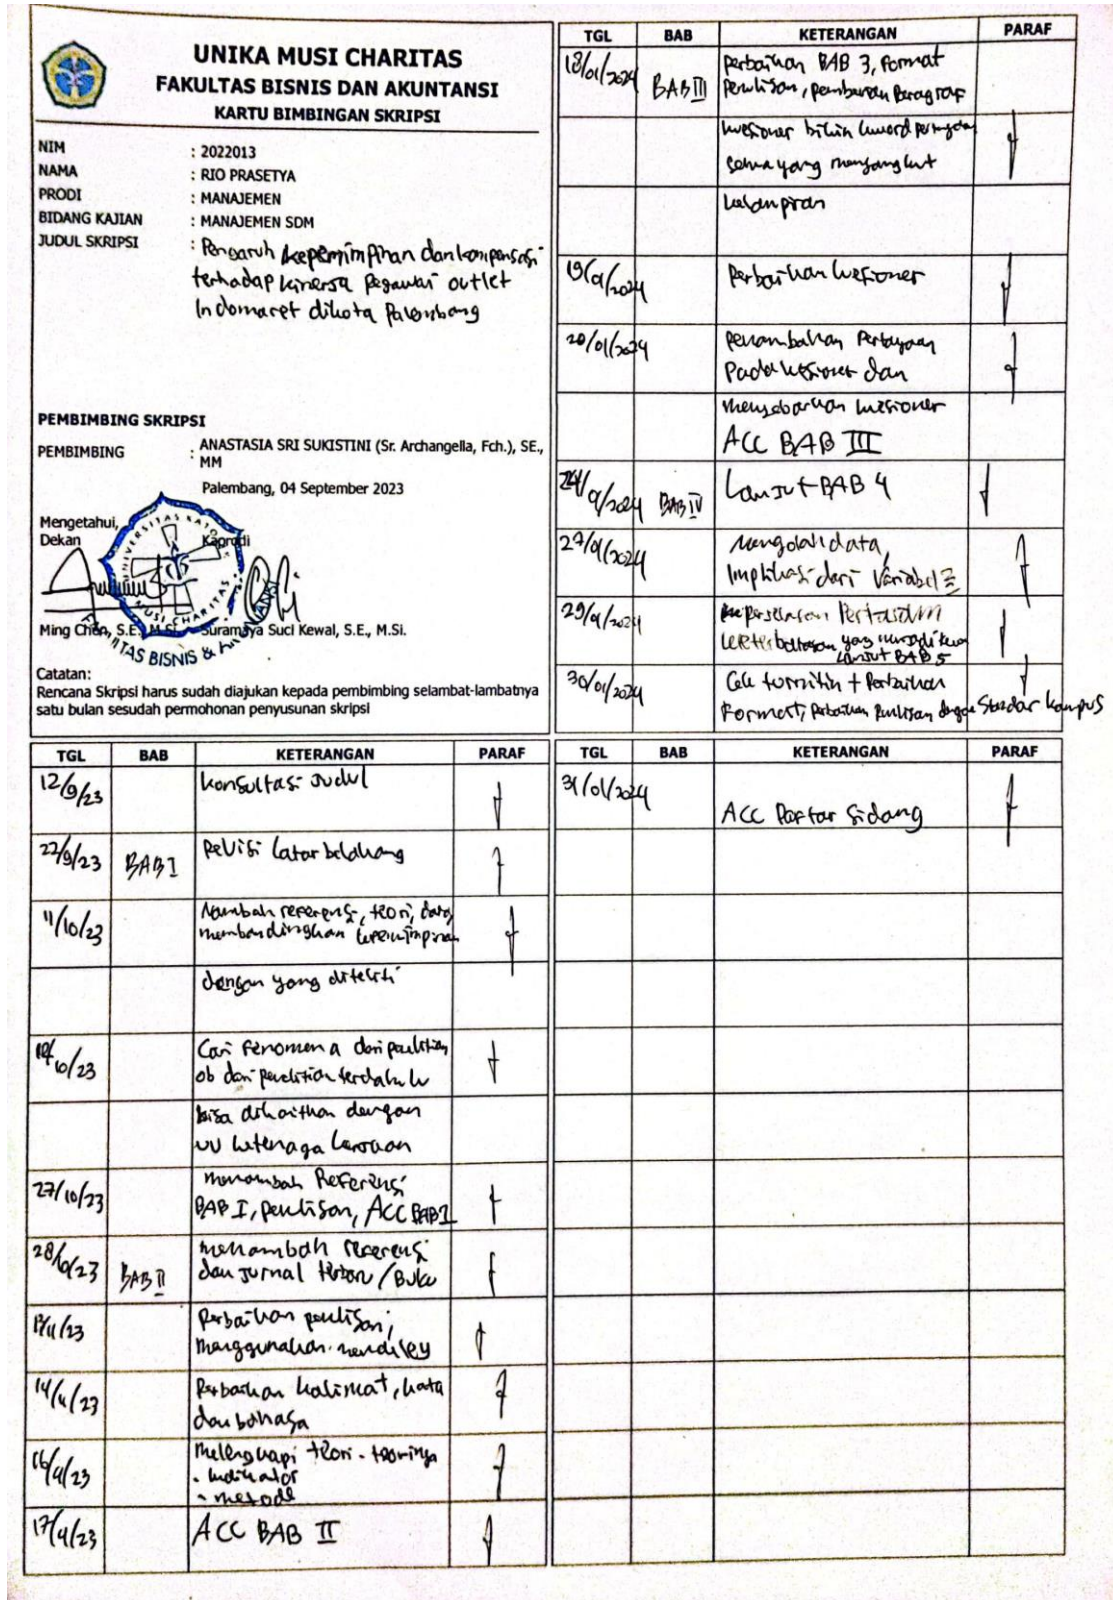 UNIKA MUSI CHARITAS
FAKULTAS BISNIS DAN AKUNTANSI
KARTU BIMBINGAN SKRIPSI
NIM : 2022013
NAMA : RIO PRASETYA
PRODI : MANAJEMEN
BIDANG KAJIAN : MANAJEMEN SDM
JUDUL SKRIPSI : Pengaruh kepemimpinan dan kompensasi
terhadap kinerja pegawai outlet
Indomaret dikota Palembang
PEMBIMBING SKRIPSI
PEMBIMBING : ANASTASIA SRI SUKISTINI (Sr. Archangella, Fch.), SE.,
MM
Palembang, 04 September 2023
Mengetahui,
Dekan Kaprodi
Ming Chen, S.E., M.Si. Suramaya Suci Kewal, S.E., M.Si.
UNIVERSITAS KATOLIK
MUSI CHARITAS
FAKULTAS BISNIS & AKUNTANSI
Catatan:
Rencana Skripsi harus sudah diajukan kepada pembimbing selambat-lambatnya
satu bulan sesudah permohonan penyusunan skripsi
TGL BAB KETERANGAN PARAF
12/9/23 Konsultasi Judul
22/9/23 BAB I Revisi latar belakang
11/10/23 Nambah referensi, teori, data
membandingkan kepemimpinan
dengan yang diteliti
10/23 Cari fenomena dari penelitian
ob dari penelitian terdahulu
bisa dikaitkan dengan
UU ketenaga kerjaan
27/10/23 menambah Referensi
BAB I, penulisan, ACC BAB I
28/10/23 BAB II menambah referensi
dan jurnal terbaru / Buku
/11/23 Perbaikan penulisan,
menggunakan mendeley
14/11/23 Perbaikan kalimat, kata
dan bahasa
16/11/23 melengkapi teori - teorinya
- indikator
- metode
17/11/23 ACC BAB II
TGL BAB KETERANGAN PARAF
18/01/2024 BAB III perbaikan BAB 3, Format
Penulisan, pembuatan Paragraf
kuesioner bikin word
semua yang menyangkut
kelampiran
19/01/2024 Perbaikan kuesioner
20/01/2024 Penambahan Pertanyaan
Pada kuesioner dan
menyebarkan kuesioner
ACC BAB III
24/01/2024 BAB IV Lanjut BAB 4
27/01/2024 Mengolah data,
Implikasi dari Variabel
29/01/2024
keterbatasan yang menjadi
Lanjut BAB 5
30/01/2024 Cek turnitin + Perbaikan
Format, Perbaikan Penulisan dengan Standar kampus
TGL BAB KETERANGAN PARAF
31/01/2024 ACC Daftar Sidang